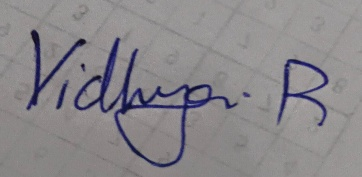 Vidhya. R